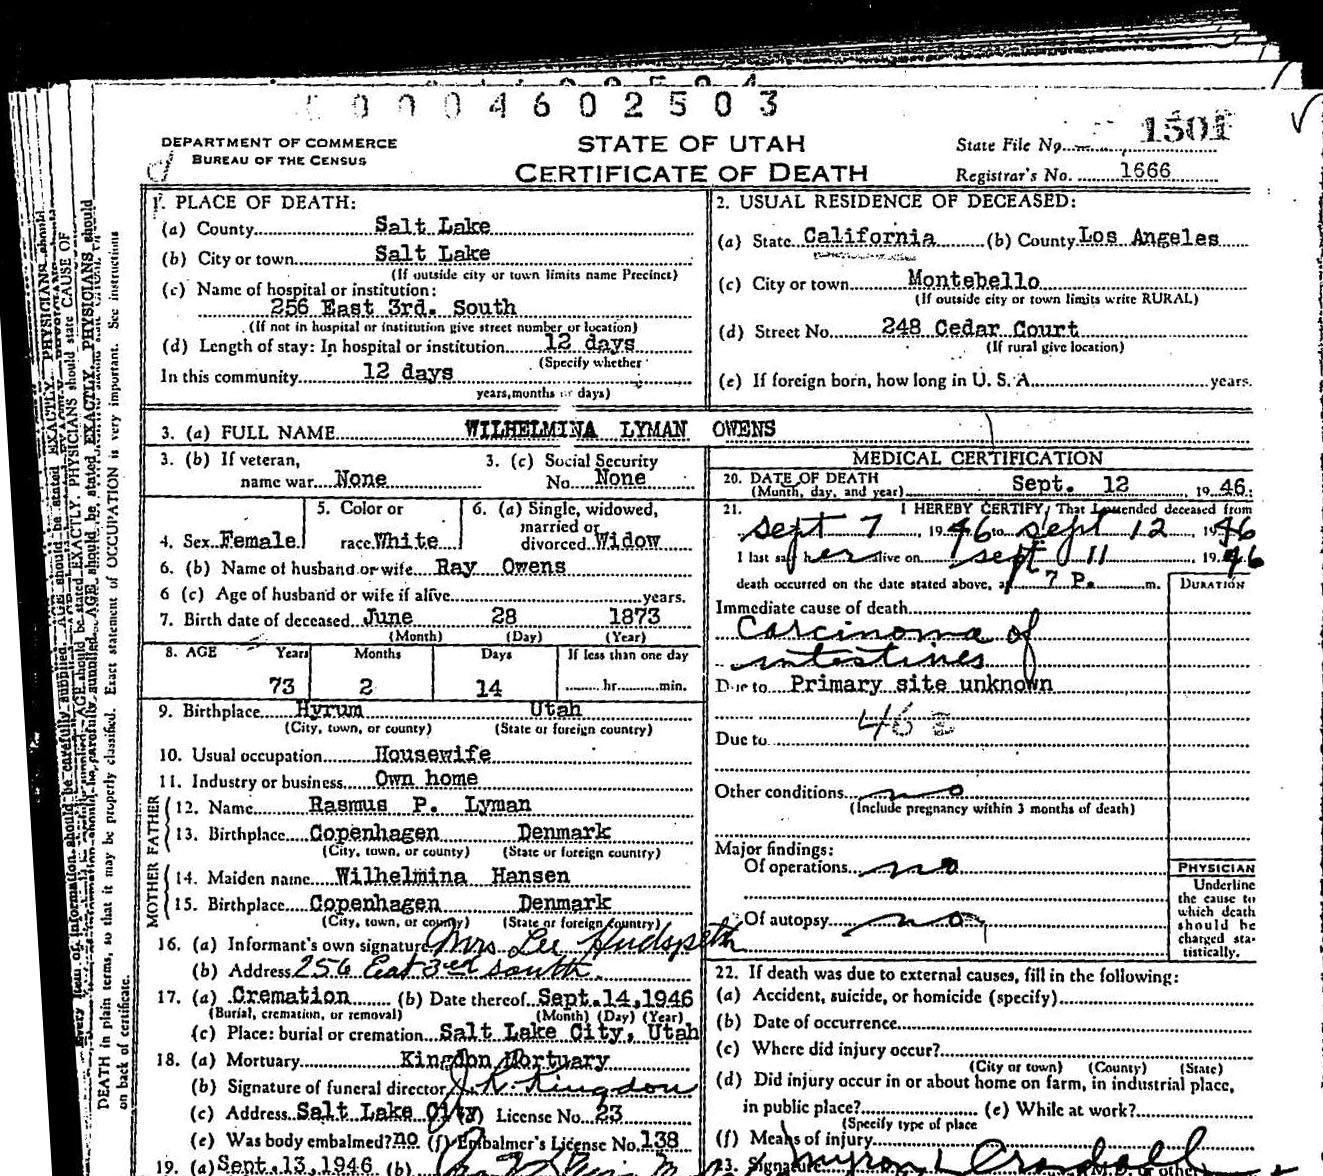 0 0 0 4 6 0 2 5 0 3
DEPARTMENT OF COMMERCE
BUREAU OF THE CENSUS
STATE OF UTAH
CERTIFICATE OF DEATH
State File No. 1501
Registrar's No. 1666
1. PLACE OF DEATH:
(a) County Salt Lake
(b) City or town Salt Lake
(If outside city or town limits name Precinct)
(c) Name of hospital or institution:
256 East 3rd. South
(If not in hospital or institution give street number or location)
(d) Length of stay: In hospital or institution 12 days
(Specify whether
In this community 12 days
years, months or days)
2. USUAL RESIDENCE OF DECEASED:
(a) State California (b) County Los Angeles
(c) City or town Montebello
(If outside city or town limits write RURAL)
(d) Street No. 248 Cedar Court
(If rural give location)
(e) If foreign born, how long in U. S. A. years.
3. (a) FULL NAME WILHELMINA LYMAN OWENS
3. (b) If veteran,
name war None
3. (c) Social Security
No. None
4. Sex Female
5. Color or
race White
6. (a) Single, widowed,
married or
divorced Widow
6. (b) Name of husband or wife Ray Owens
6 (c) Age of husband or wife if alive years.
7. Birth date of deceased June 28 1873
(Month) (Day) (Year)
8. AGE Years Months Days If less than one day
73 2 14 hr. min.
9. Birthplace Hyrum Utah
(City, town, or county) (State or foreign country)
10. Usual occupation Housewife
11. Industry or business Own home
FATHER
12. Name Rasmus P. Lyman
13. Birthplace Copenhagen Denmark
(City, town, or county) (State or foreign country)
MOTHER
14. Maiden name Wilhelmina Hansen
15. Birthplace Copenhagen Denmark
(City, town, or county) (State or foreign country)
16. (a) Informant's own signature Mrs. Lee Hudspeth
(b) Address 256 East 3rd South
17. (a) Cremation (b) Date thereof Sept. 14, 1946
(Burial, cremation, or removal) (Month) (Day) (Year)
(c) Place: burial or cremation Salt Lake City, Utah
18. (a) Mortuary Kingdon Mortuary
(b) Signature of funeral director J. K. Kingdon
(c) Address Salt Lake City License No. 23
(e) Was body embalmed? no (f) Embalmer's License No. 138
19. (a) Sept. 13, 1946 (b)
MEDICAL CERTIFICATION
20. DATE OF DEATH
(Month, day, and year) Sept. 12, 1946:
21. I HEREBY CERTIFY, That I attended deceased from
Sept 7, 1946 to Sept 12, 1946
I last saw her alive on Sept 11 1946
death occurred on the date stated above, at 7 P. m.
DURATION
Immediate cause of death
Carcinoma of
intestines
Due to Primary site unknown
46
Due to
Other conditions no
(Include pregnancy within 3 months of death)
Major findings:
Of operations no
Of autopsy no
PHYSICIAN
Underline
the cause to
which death
should be
charged sta-
tistically.
22. If death was due to external causes, fill in the following:
(a) Accident, suicide, or homicide (specify)
(b) Date of occurrence
(c) Where did injury occur?
(City or town) (County) (State)
(d) Did injury occur in or about home on farm, in industrial place,
in public place? (e) While at work?
(Specify type of place
(f) Means of injury
23. Signature Myron L Crandall
DEATH in plain terms, so that it may be properly classified. Exact statement of OCCUPATION is very important. See instructions
on back of certificate.